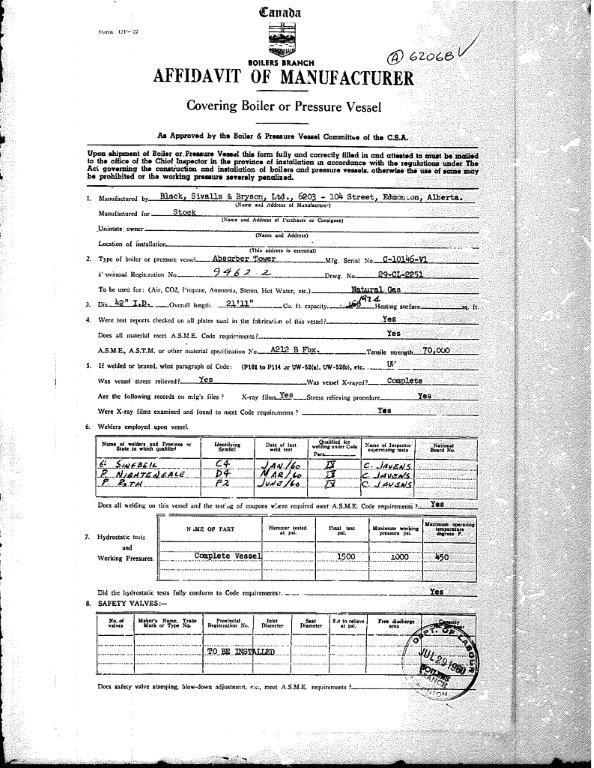 Canada
Form
BOILERS BRANCH
A 62068
AFFIDAVIT OF MANUFACTURER
Covering Boiler or Pressure Vessel
As Approved by the Boiler & Pressure Vessel Committee of the C.S.A.
Upon shipment of Boiler or Pressure Vessel this form fully and correctly filled in and attested to must be mailed
to the office of the Chief Inspector in the province of installation in accordance with the regulations under The
Act governing the construction and installation of boilers and pressure vessels, otherwise the use of same may
be prohibited or the working pressure severely penalized.
1. Manufactured by Black, Sivalls & Bryson, Ltd., 6203 - 104 Street, Edmonton, Alberta.
(Name and Address of Manufacturer)
Manufactured for Stock
(Name and Address of Purchaser or Consignee)
Ultimate owner
(Name and Address)
Location of installation
(This address is essential)
2. Type of boiler or pressure vessel Absorber Tower Mfg. Serial No. C-10146-V1
Provincial Registration No. 9462 2 Drwg. No. 29-CL-2251
To be used for: (Air, CO2, Propane, Ammonia, Steam, Hot Water, etc.) Natural Gas
3. Dia. 42" I.D. Overall length 21'11" Cu. ft. capacity Heating surface sq. ft.
4. Were test reports checked on all plates used in the fabrication of this vessel? Yes
Does all material meet A.S.M.E. Code requirements? Yes
A.S.M.E., A.S.T.M. or other material specification No. A212 B Fbx. Tensile strength 70,000
5. If welded or brazed, what paragraph of Code: (P101 to P114 or UW-52(a), UW-52(b), etc.
Was vessel stress relieved? Yes Was vessel X-rayed? Complete
Are the following records on mfg's files? X-ray films Yes Stress relieving procedure Yes
Were X-ray films examined and found to meet Code requirements? Yes
6. Welders employed upon vessel.
Name of welders and Province or State in which qualified Identifying Symbol Date of last weld test Qualified for welding under Code Para. Name of Inspector supervising tests National Board No.
C4 JAN/60 IX C. JAVENS
P. NIGHTENGALE D4 MAR/60 IX C. JAVENS
P. ROTH P2 JUNE/60 IX C. JAVENS
Does all welding on this vessel and the testing of coupons where required meet A.S.M.E. Code requirements? Yes
7. Hydrostatic tests and Working Pressures.
NAME OF PART Hammer tested at psi. Final test psi. Maximum working pressure psi. Maximum operating temperature degrees F.
Complete Vessel 1500 1000 450
Did the hydrostatic tests fully conform to Code requirements? Yes
8. SAFETY VALVES:—
No. of valves Maker's Name, Trade Mark or Type No. Provincial Registration No. Inlet Diameter Seat Diameter Set to relieve at psi. Free discharge area Capacity
TO BE INSTALLED
DEPT. OF LABOUR
JUL 29 1960
BOILERS
BRANCH
Does safety valve stamping, blow-down adjustment, etc., meet A.S.M.E. requirements?